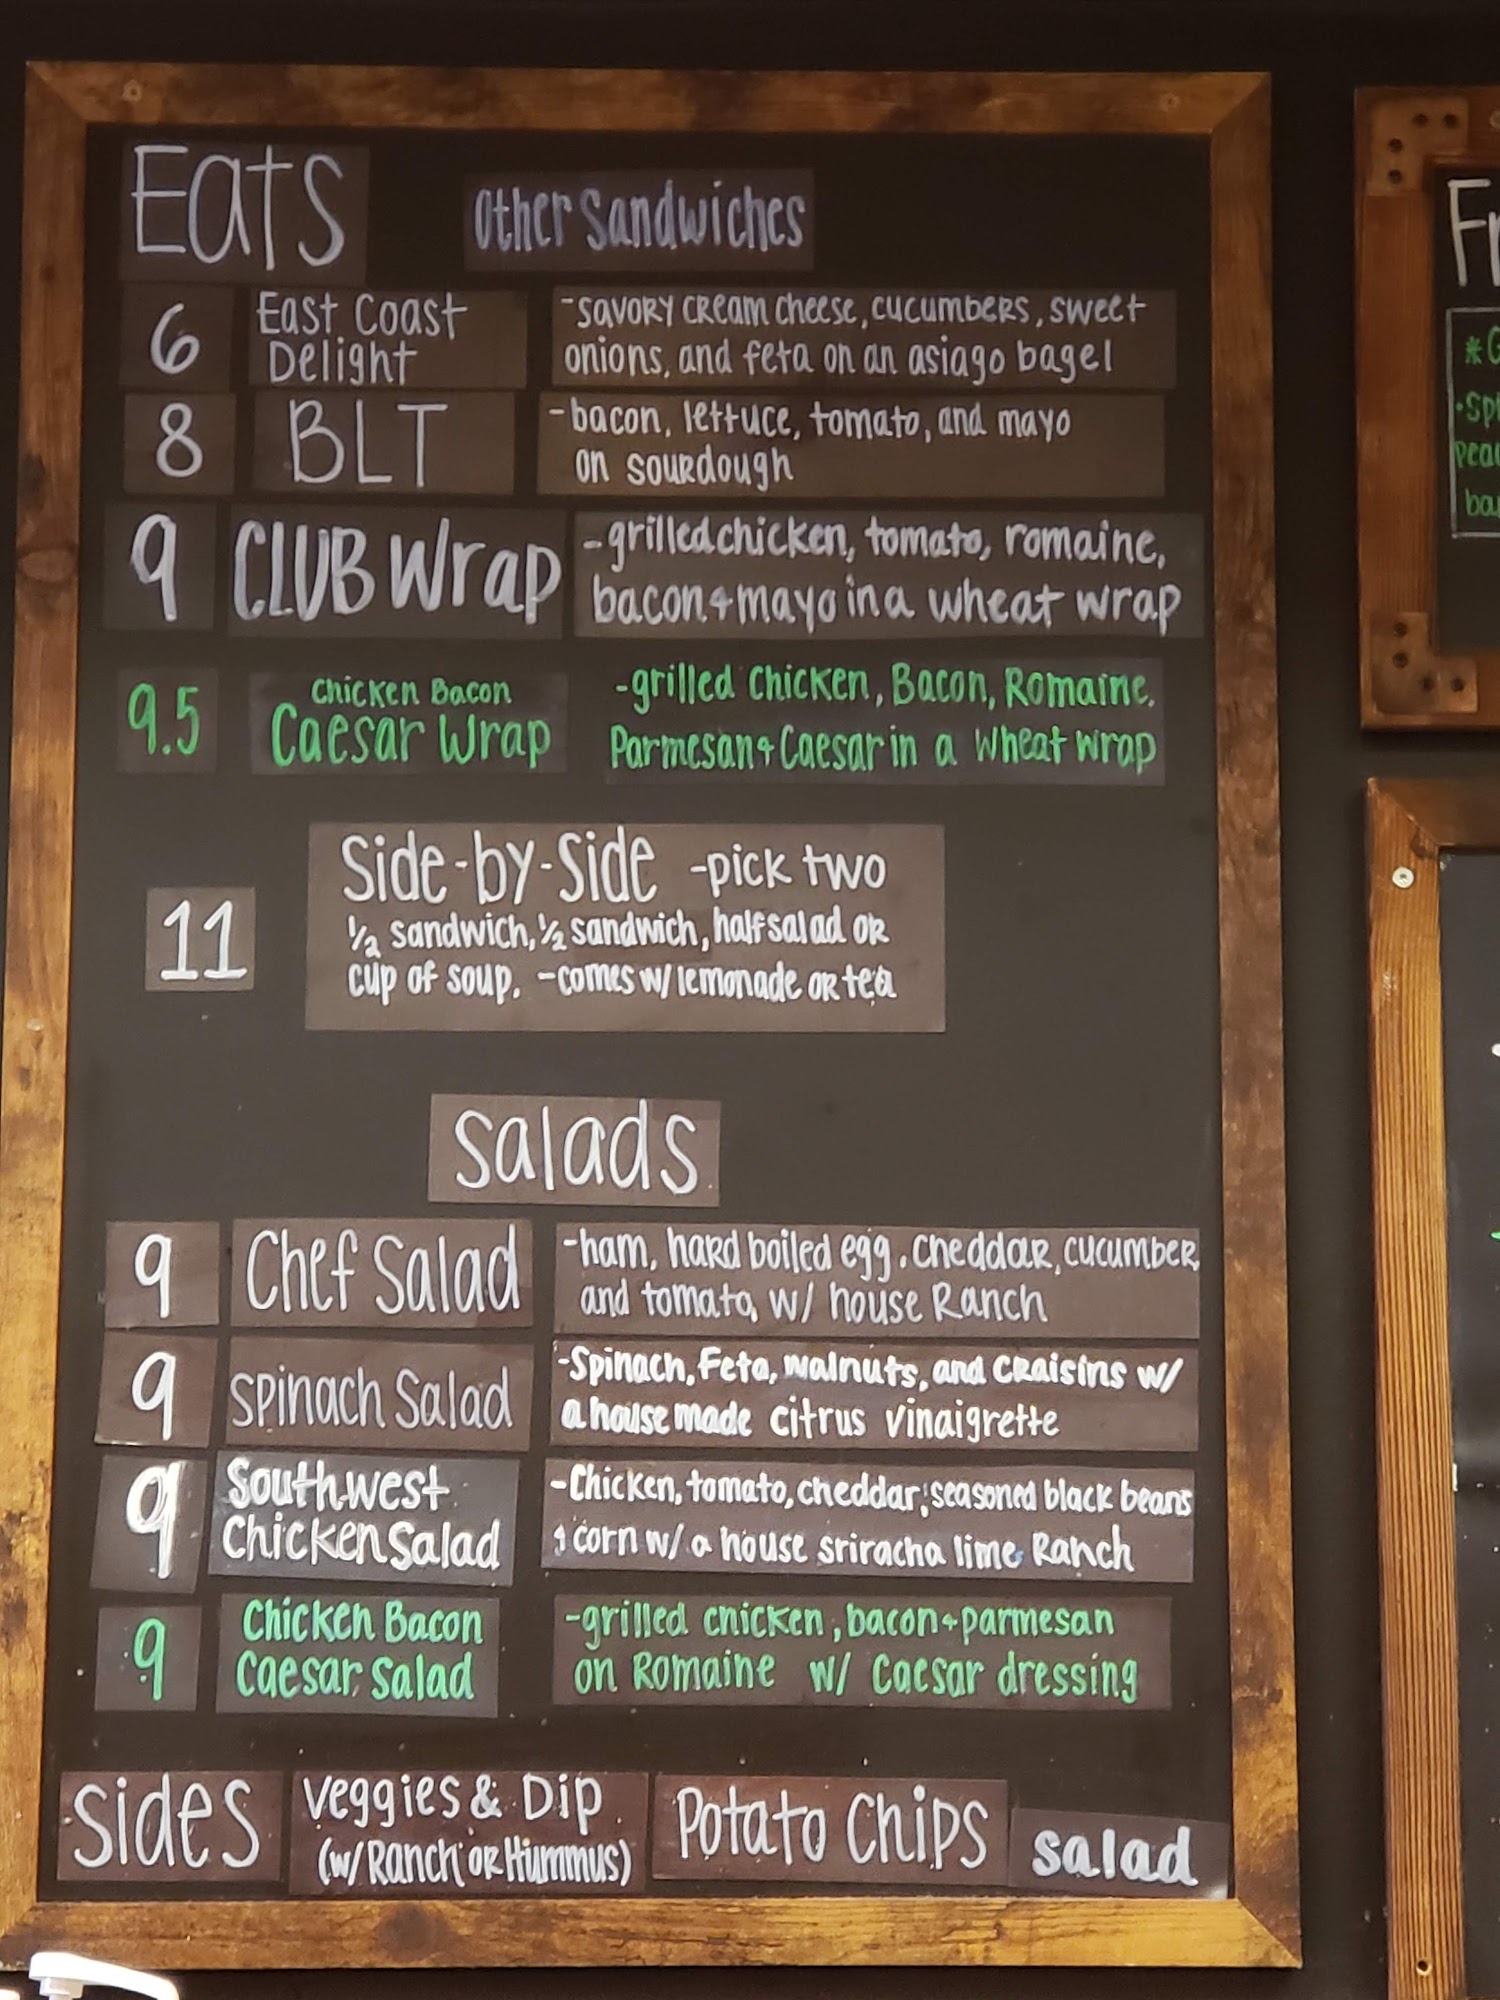 Eats
Other Sandwiches
6
East Coast
Delight
-savory cream cheese, cucumbers, sweet
onions, and feta on an asiago bagel
8
BLT
-bacon, lettuce, tomato, and mayo
on sourdough
9
CLUB Wrap
-grilled chicken, tomato, romaine,
bacon + mayo in a wheat wrap
9.5
Chicken Bacon
Caesar Wrap
-grilled Chicken, Bacon, Romaine.
Parmesan + Caesar in a wheat wrap
11
Side-by-Side -pick two
1/2 sandwich, 1/2 sandwich, half salad or
cup of soup. -comes w/ lemonade or tea
Salads
9
Chef Salad
-ham, hard boiled egg, cheddar, cucumber
and tomato, w/ house Ranch
9
Spinach Salad
-Spinach, Feta, walnuts, and craisins w/
a house made citrus vinaigrette
9
Southwest
Chicken Salad
-Chicken, tomato, cheddar, seasoned black beans
+ corn w/ a house sriracha lime Ranch
9
Chicken Bacon
Caesar Salad
-grilled chicken, bacon + parmesan
on Romaine w/ Caesar dressing
Sides
Veggies & Dip
(w/ Ranch or Hummus)
Potato Chips
salad